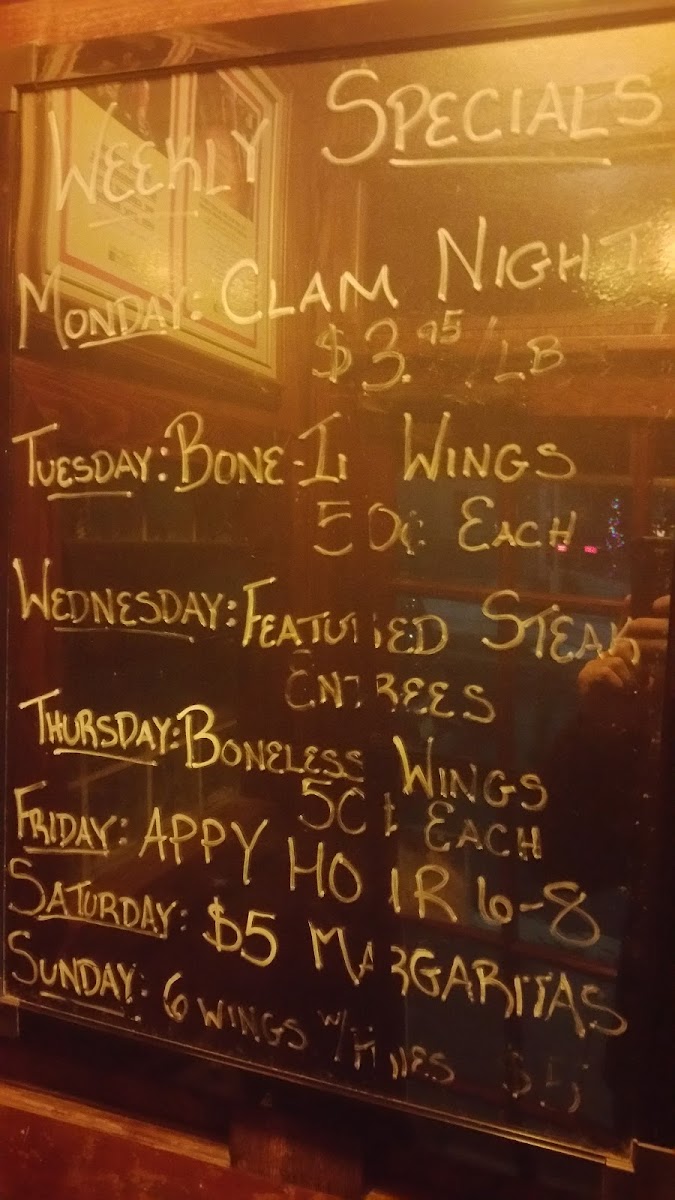 WEEKLY SPECIALS
MONDAY: CLAM NIGHT
$3.95/LB
TUESDAY: BONE-IN WINGS
50¢ EACH
WEDNESDAY: FEATURED STEAK
ENTREES
THURSDAY: BONELESS WINGS
50¢ EACH
FRIDAY: APPY HOUR 6-8
SATURDAY: $5 MARGARITAS
SUNDAY: 6 WINGS W/ $5